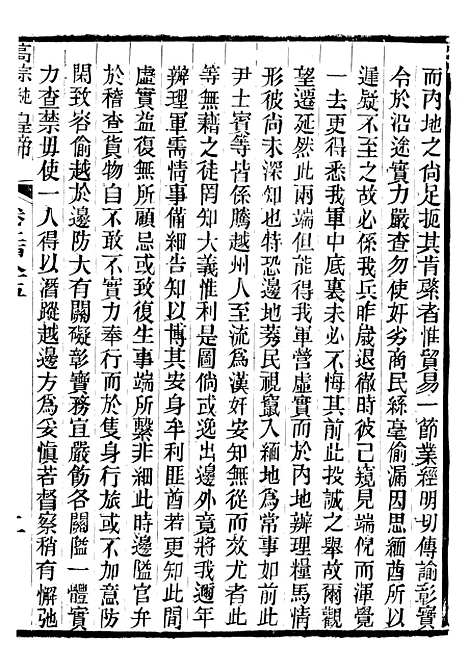 而內地之尙足扼其肯綮者惟貿易一節業經明切傳諭彰寶
令於沿途實力嚴查勿使奸劣商民絲毫偷漏因思緬酋所以
遲疑不至之故必係我兵昨歲退徹時已窺見端倪而渾覺
一去更得悉我軍中底裏未必不悔其前此投誠之舉故爾觀
望遷延然此兩端但能得我軍營虛實而於內地辦理糧馬情
形彼尙未深知也前此邊地莠民視竄入緬地爲常卽如前此
尹士賓等皆係騰越州人乃至流爲漢奸安知無從而效尤者此
等無藉之徒罔知大義惟利是圖倘或逸出邊外竟將我邇年
辦理軍需情事備細告知以博其安身牟利匪酋若更知此間
虛實益復無所顧忌或致復生事端所繫非細此時邊隘官弁
於稽查貨物自不敢不實力奉行而於隻身行旅或不加意防
閑致容偷越於邊防大有關礙彰寶務宜嚴飭各關隘一體實
力查禁毋使一人得以潛蹤越邊方爲妥愼若督察稍有懈弛
高宗純皇帝